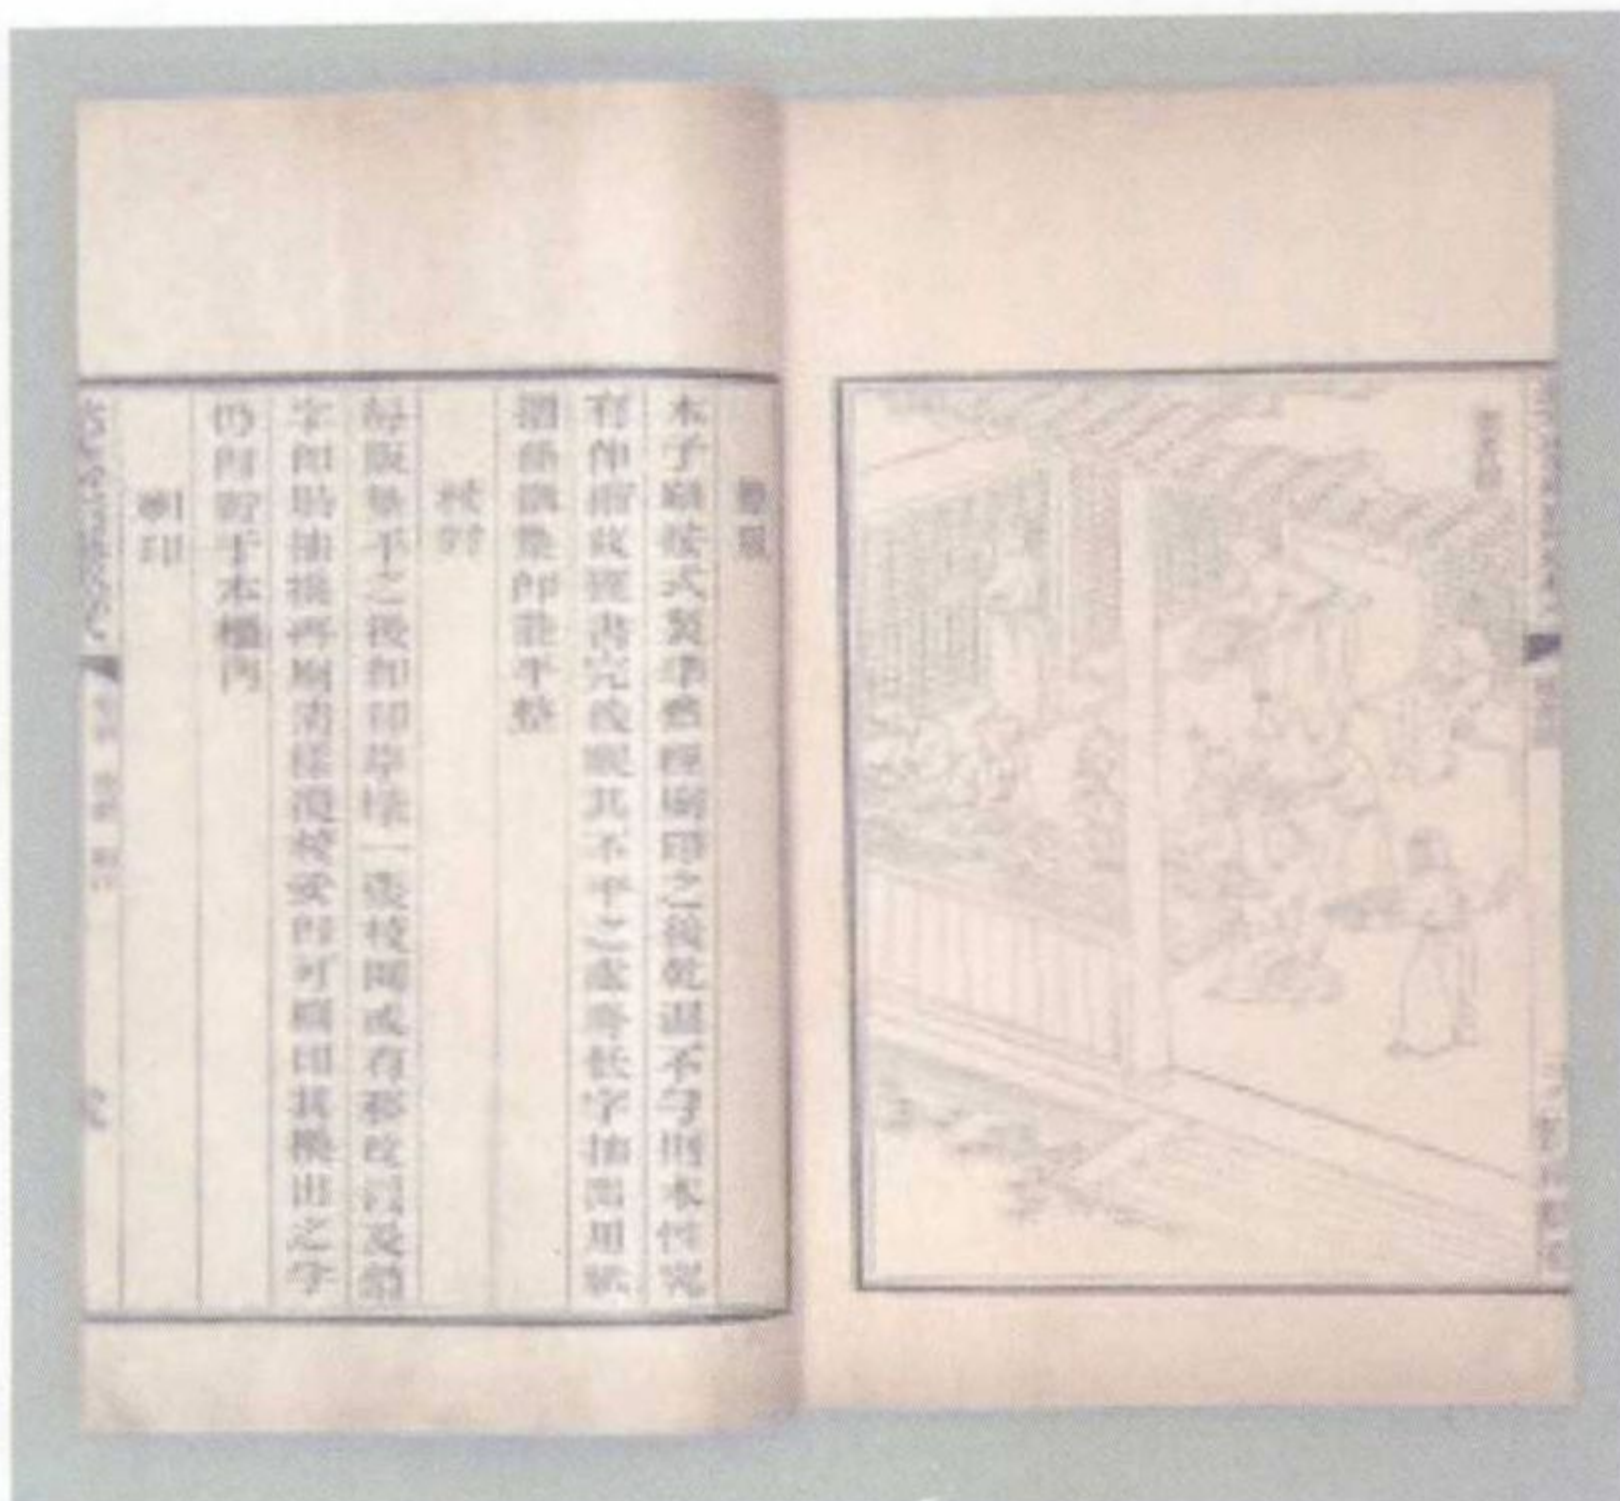 墊版
木子雖按式製準然經刷印之後乾濕不勻則木性究
有伸縮故擺書完後視其不平之處將低字抽出用紙
摺條微墊即能平整
校對
每版墊平之後即印草樣一張校閱或有移改及
字即時抽換再刷清樣覆校妥即可刷印其換出之字
仍即貯于木櫃內
刷印